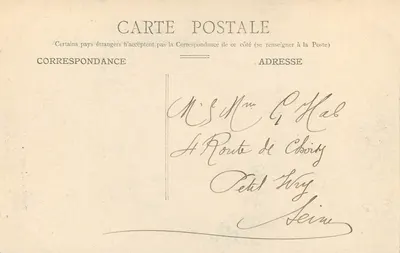 CARTE POSTALE
Certains pays étrangers n'acceptent pas la Correspondance de ce côté (se renseigner à la Poste)
CORRESPONDANCE
ADRESSE
Mr & Mme G Hab
4 Route de Choisy
Petit Ivry
Seine